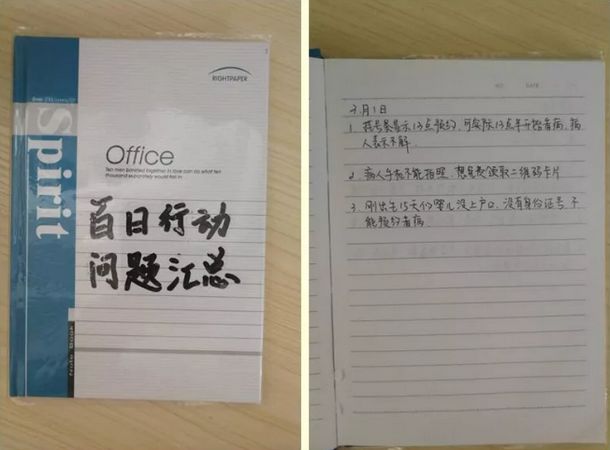 RIGHTPAPER
Spirit
Office
Ten men banded together in love can do what ten
thousand separately would fail in.
百日行动
问题汇总
NOTE BOOK
NO.
DATE
3月1日
1. 挂号条显示13点预约,可实际13点半开始看病,病
人表示不解.
2. 病人手机不能拍照,想免费领取二维码卡片
3. 刚出生15天的婴儿没上户口,没有身份证号 不
能预约看病.